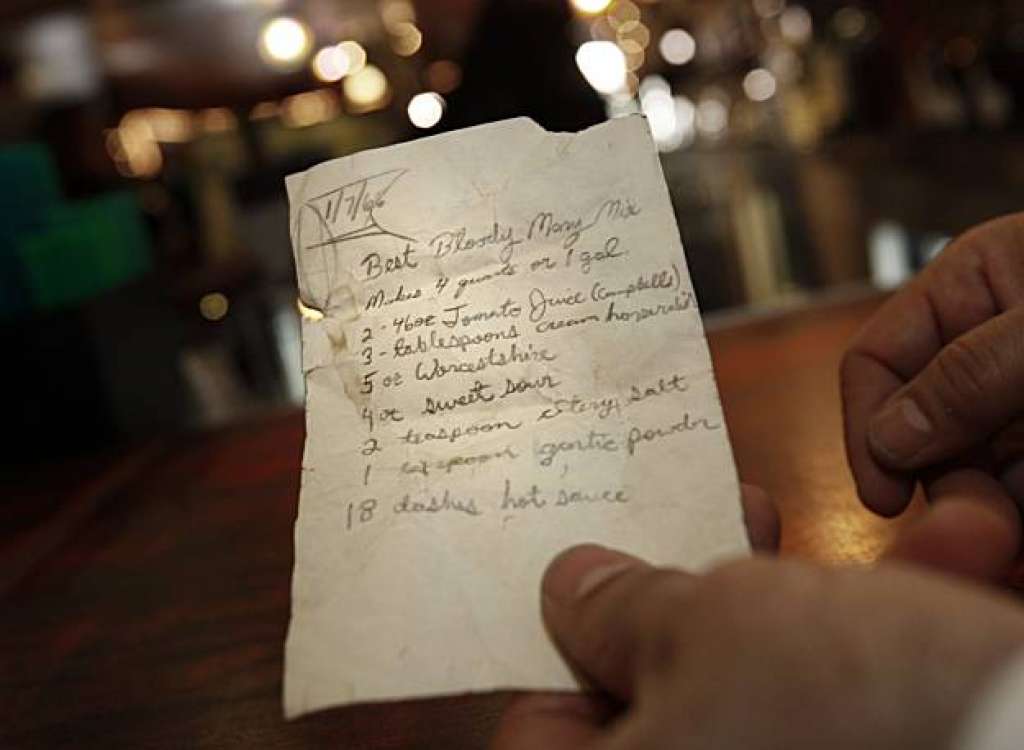 1/7/66
Best Bloody Mary Mix
Makes 4 quarts or 1 gal.
2 - 46oz Tomato Juice (Campbells)
3 - tablespoons cream
5 oz Worcestshire
4 oz sweet sour
2 teaspoon celery salt
1 garlic powder
18 dashes hot sauce